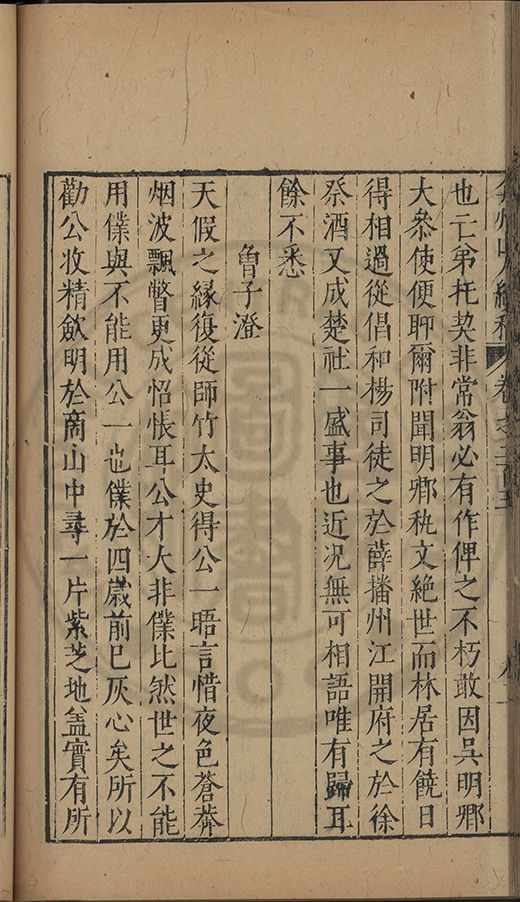 弇州山人續稿 卷之二百五
也亡弟托契非常翁必有作俾之不朽敢因吳明卿
大參使便聊爾附聞明卿秇文絕世而林居有饒日
得相過從倡和楊司徒之於薛播州江開府之於徐
祭酒又成楚社一盛事也近況無可相語唯有歸耳
餘不悉
魯子澄
天假之緣復從師竹太史得公一晤言惜夜色蒼莽
烟波飄瞥更成怊悵耳公才大非僕比然世之不能
用僕與不能用公一也僕於四歲前已灰心矣所以
勸公收精斂明於商山中尋一片紫芝地盖實有所